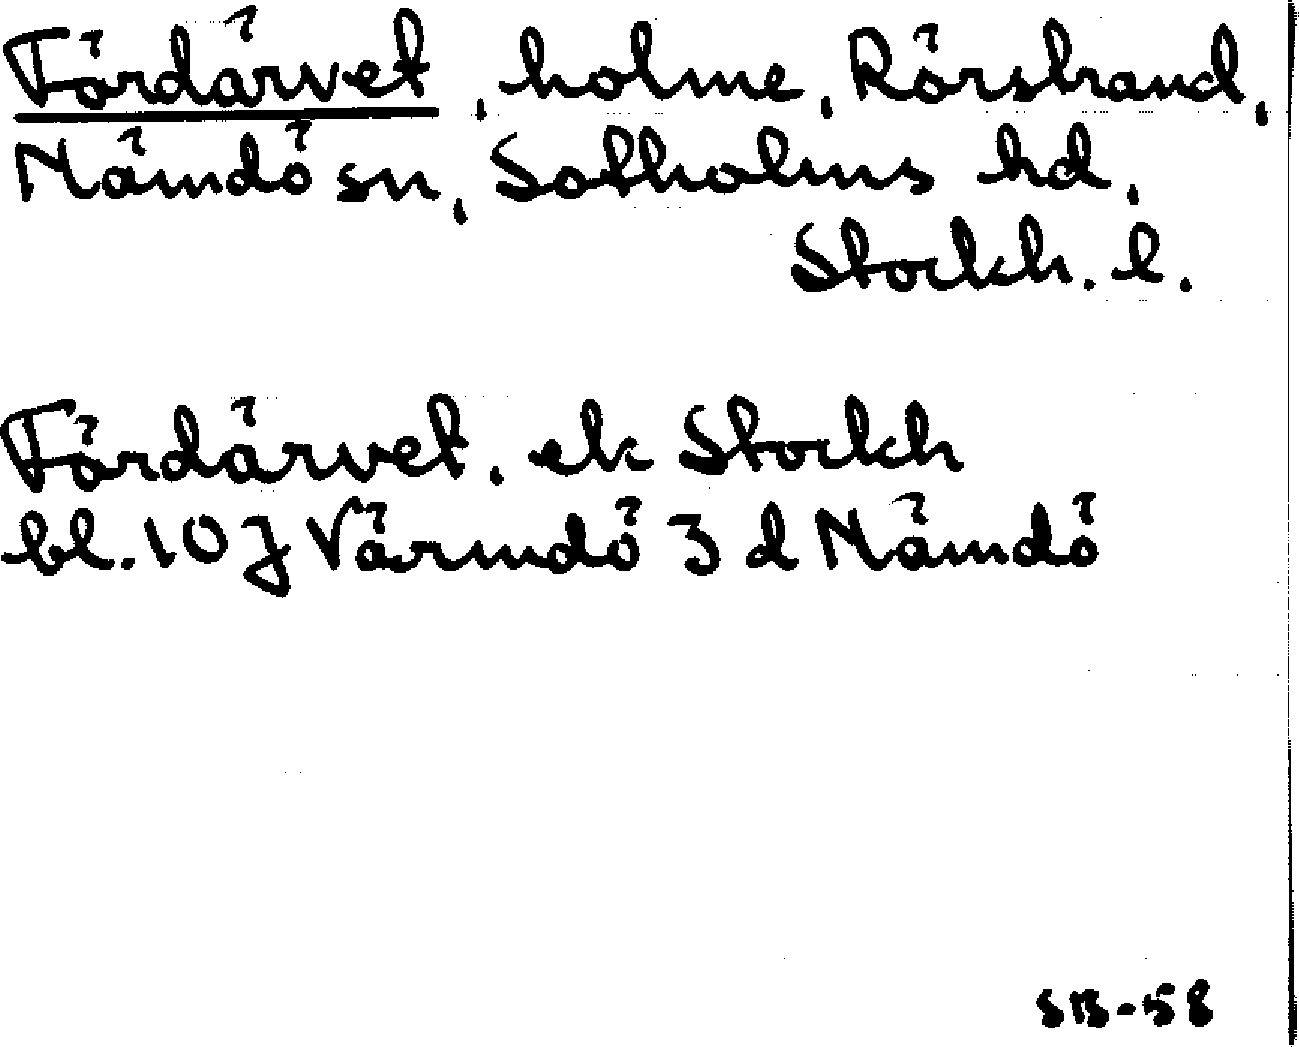 Fördärvet, holme, Rörstrand,
Nämdö sn, Sotholms hd,
Stockh. l.
Fördärvet. ek Stockh
bl. 10 J Värmdö 3 d Nämdö
SB-58